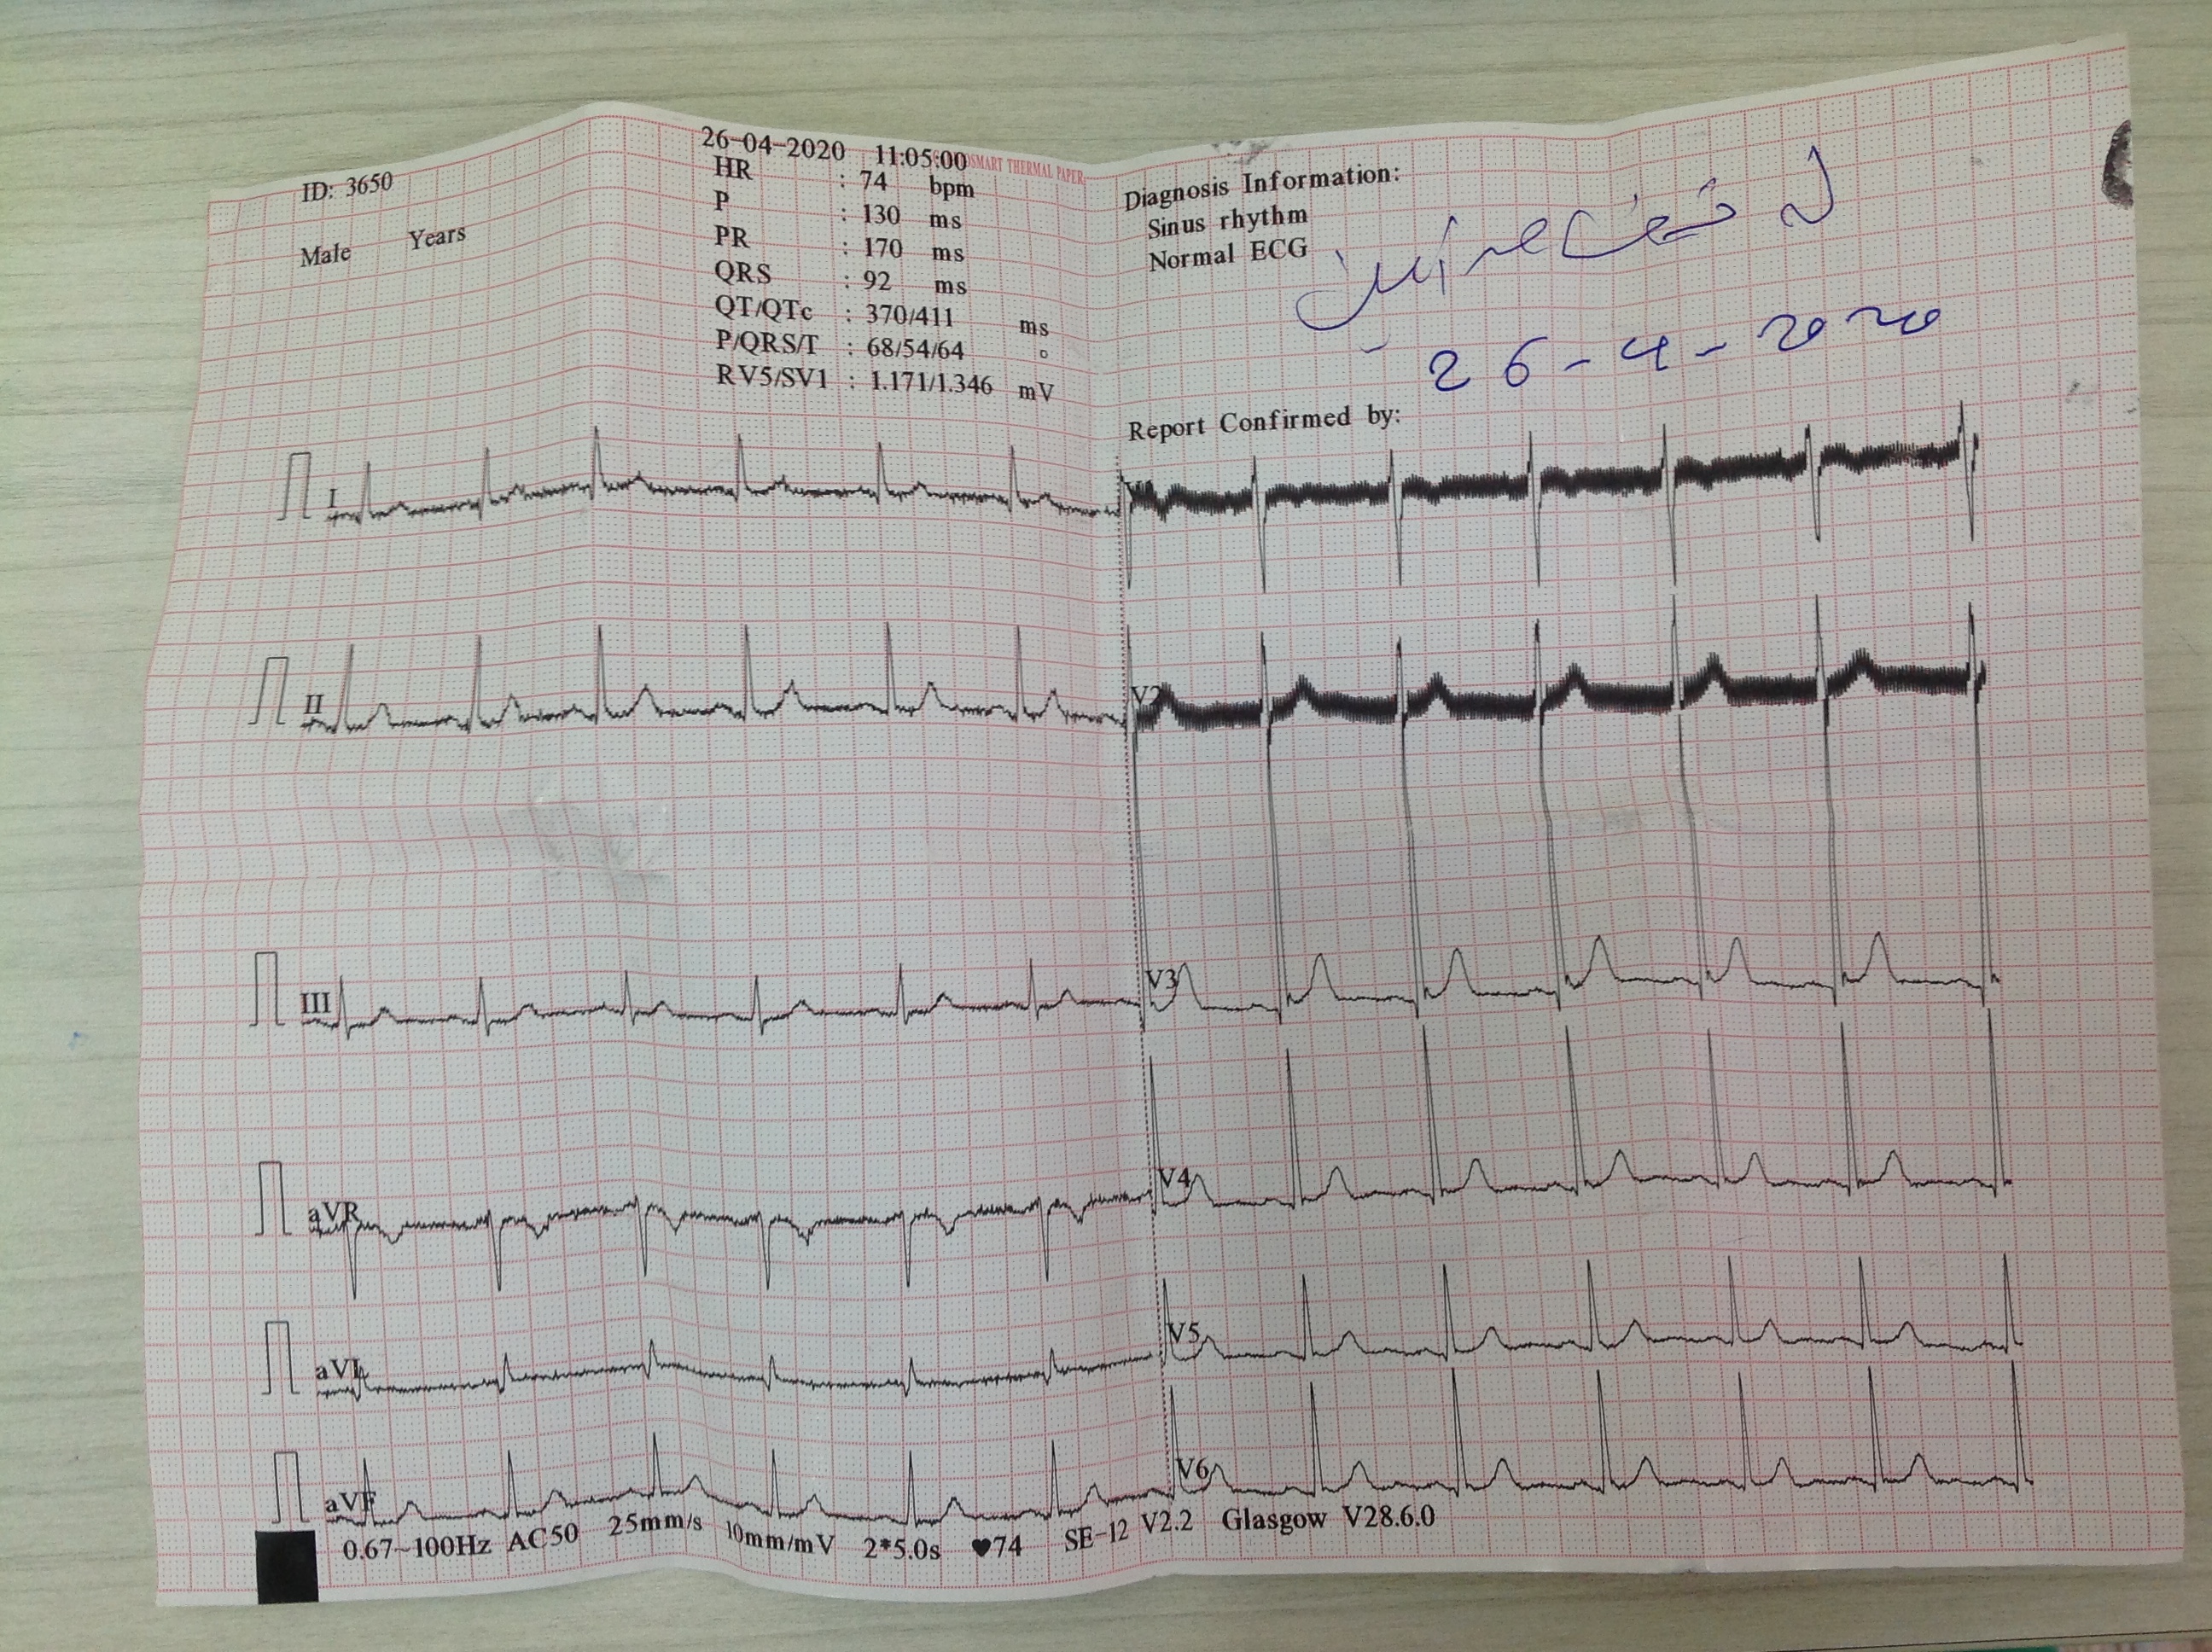 ID: 3650
Male Years
26-04-2020 11:05:00
SMART THERMAL PAPER
HR : 74 bpm
P : 130 ms
PR : 170 ms
QRS : 92 ms
QT/QTc : 370/411 ms
P/QRS/T : 68/54/64 °
RV5/SV1 : 1.171/1.346 mV
Diagnosis Information:
Sinus rhythm
Normal ECG
26-4-2020
Report Confirmed by:
I
II
V2
III
V3
aVR
V4
aVL
V5
aVF
V6
0.67~100Hz AC50 25mm/s 10mm/mV 2*5.0s ♥74 SE-12 V2.2 Glasgow V28.6.0